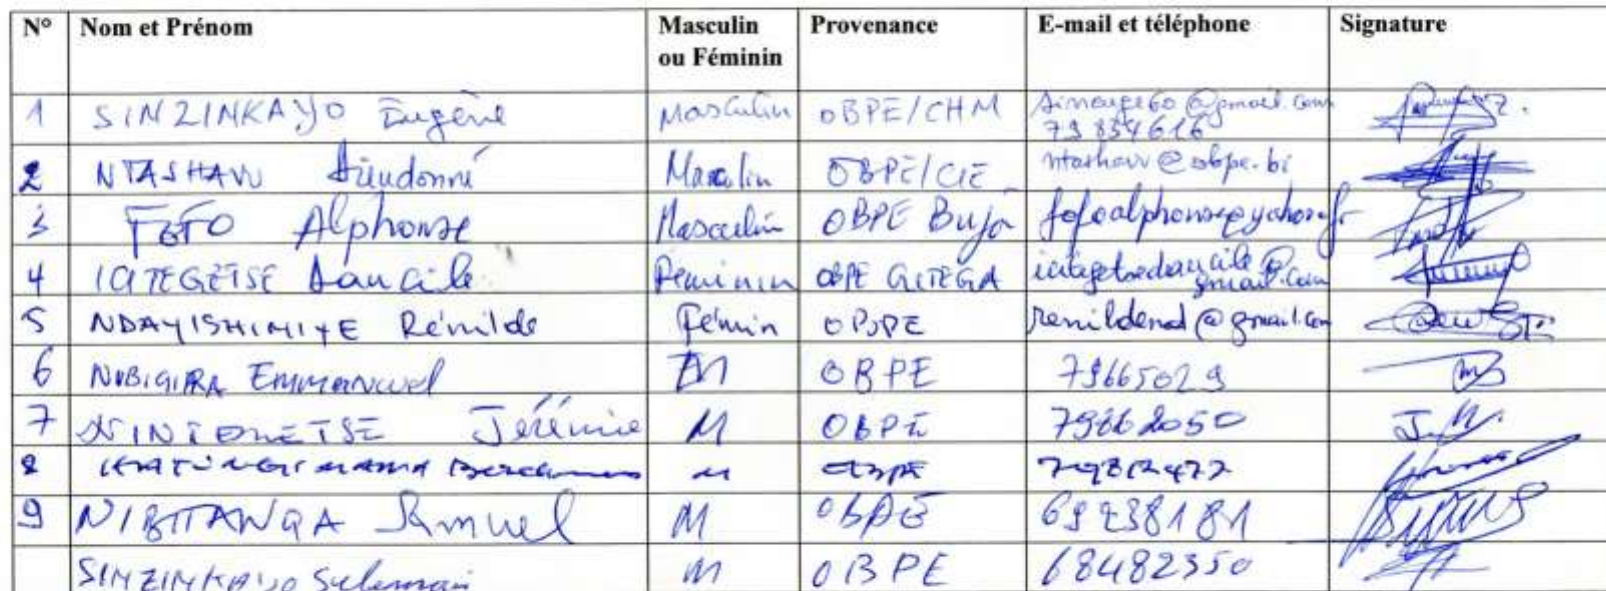 N° Nom et Prénom Masculin ou Féminin Provenance E-mail et téléphone Signature
1 SINZINKAYO Eugène Masculin OBPE/CHM 79 834616
2 NTASHAVU Dieudonné Masculin OBPE/CIE ntashavu@obpe.bi
3 FOFO Alphonse Masculin OBPE Buja fofoalphonse@yahoo.fr
4 ICITEGETSE Féminin OBPE GITEGA
5 NDAYISHIMIYE Rémilde Fémin OBPE remildend@gmail.com
6 NIBIGIRA Emmanuel M OBPE 79665029
7 NINTERETSE Jérémie M OBPE 79862050
8 M OBPE
9 NIBITANGA Samuel M OBPE 69238181
SINZINKAYO M OBPE 68482350